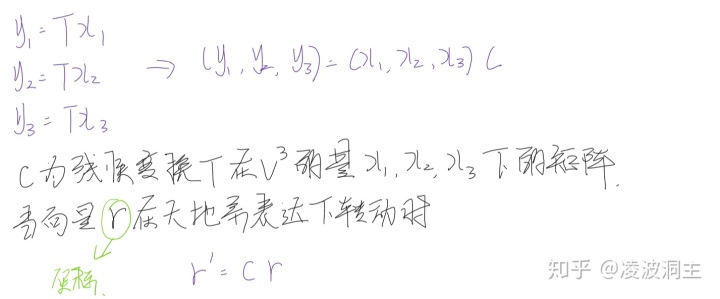 y₁ = Tx₁
y₂ = Tx₂ ⇒ (y₁, y₂, y₃) = (x₁, x₂, x₃) C
y₃ = Tx₃
C为线性变换T在V³的基x₁, x₂, x₃下的矩阵.
当向量r在大地系表达下转动时
r' = C r
知乎 @凌波洞主